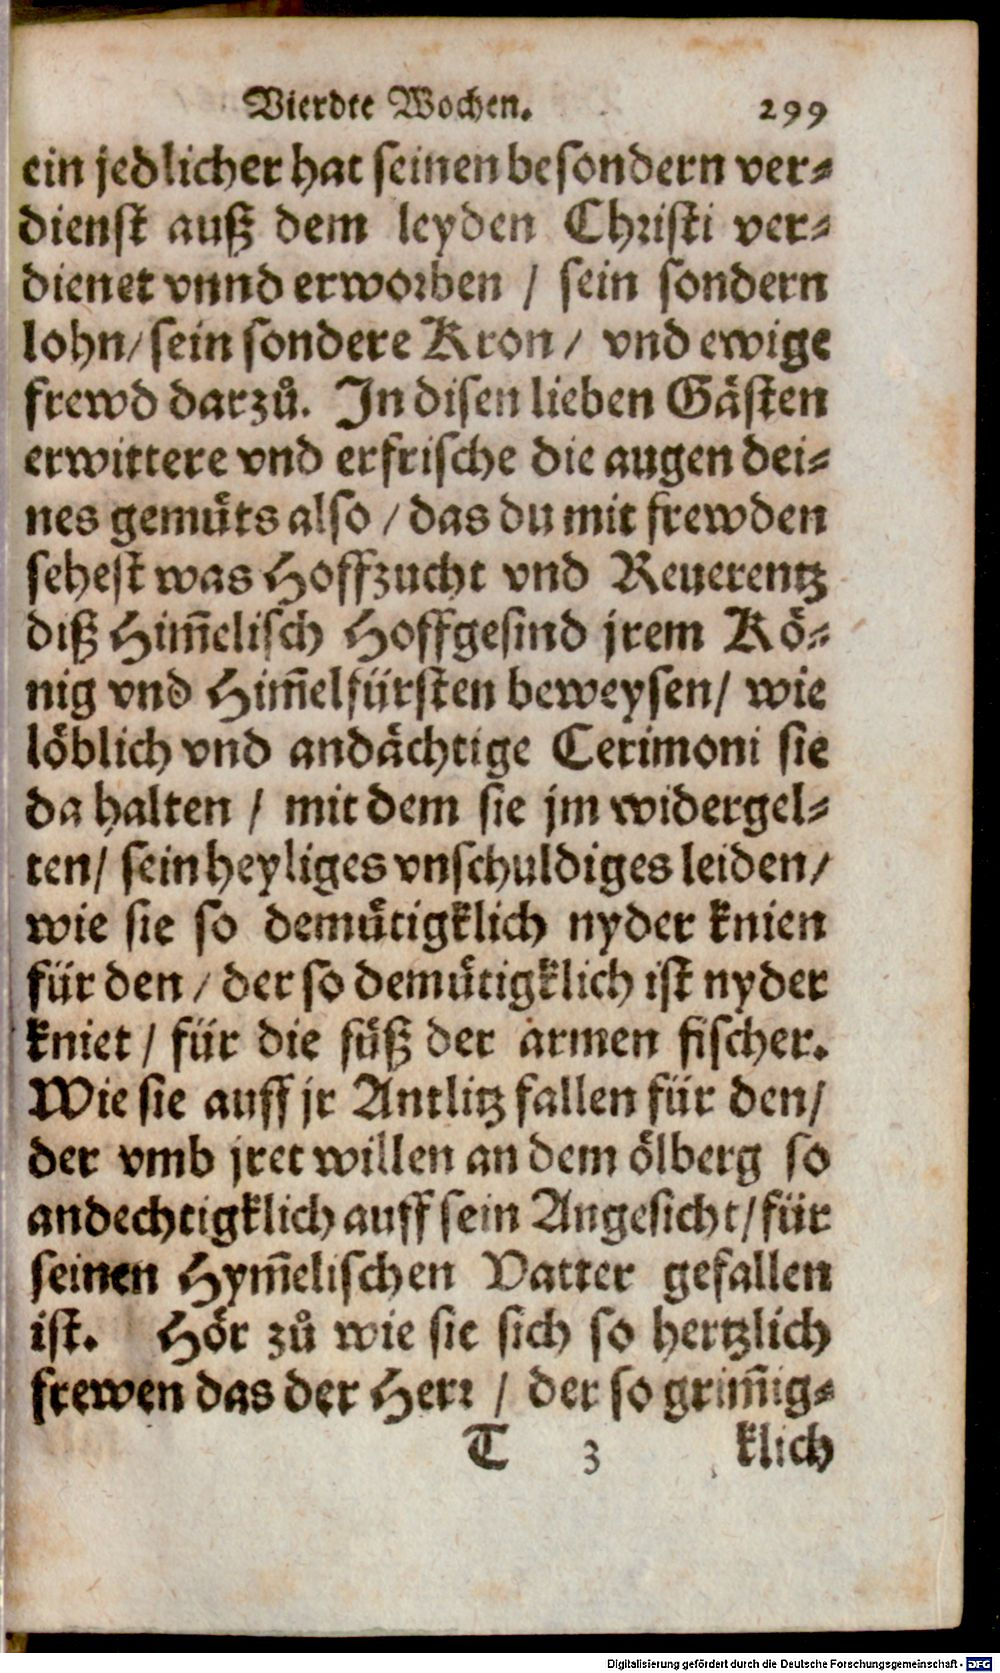 Vierdte Wochen. 299
ein jedlicher hat seinen besondern ver⸗
dienst auß dem leyden Christi ver⸗
dienet vnnd erworben / sein sondern
lohn/ sein sondere Kron / vnd ewige
frewd darzů. In disen lieben Gästen
erwittere vnd erfrische die augen dei⸗
nes gemüts also / das du mit frewden
sehest was Hoffzucht vnd Reuerentz
diß Him̃elisch Hoffgesind jrem Kö⸗
nig vnd Him̃elfürsten beweysen/ wie
löblich vnd andächtige Cerimoni sie
da halten / mit dem sie jm widergel⸗
ten/ sein heyliges vnschuldiges leiden/
wie sie so demütigklich nyder knien
für den / der so demütigklich ist nyder
kniet / für die füß der armen fischer.
Wie sie auff jr Antlitz fallen für den/
der vmb jret willen an dem ölberg so
andechtigklich auff sein Angesicht/ für
seinen Hym̃elischen Vatter gefallen
ist. Hör zů wie sie sich so hertzlich
frewen das der Herr / der so grim̃ig⸗
T 3 klich
Digitalisierung gefördert durch die Deutsche Forschungsgemeinschaft - DFG